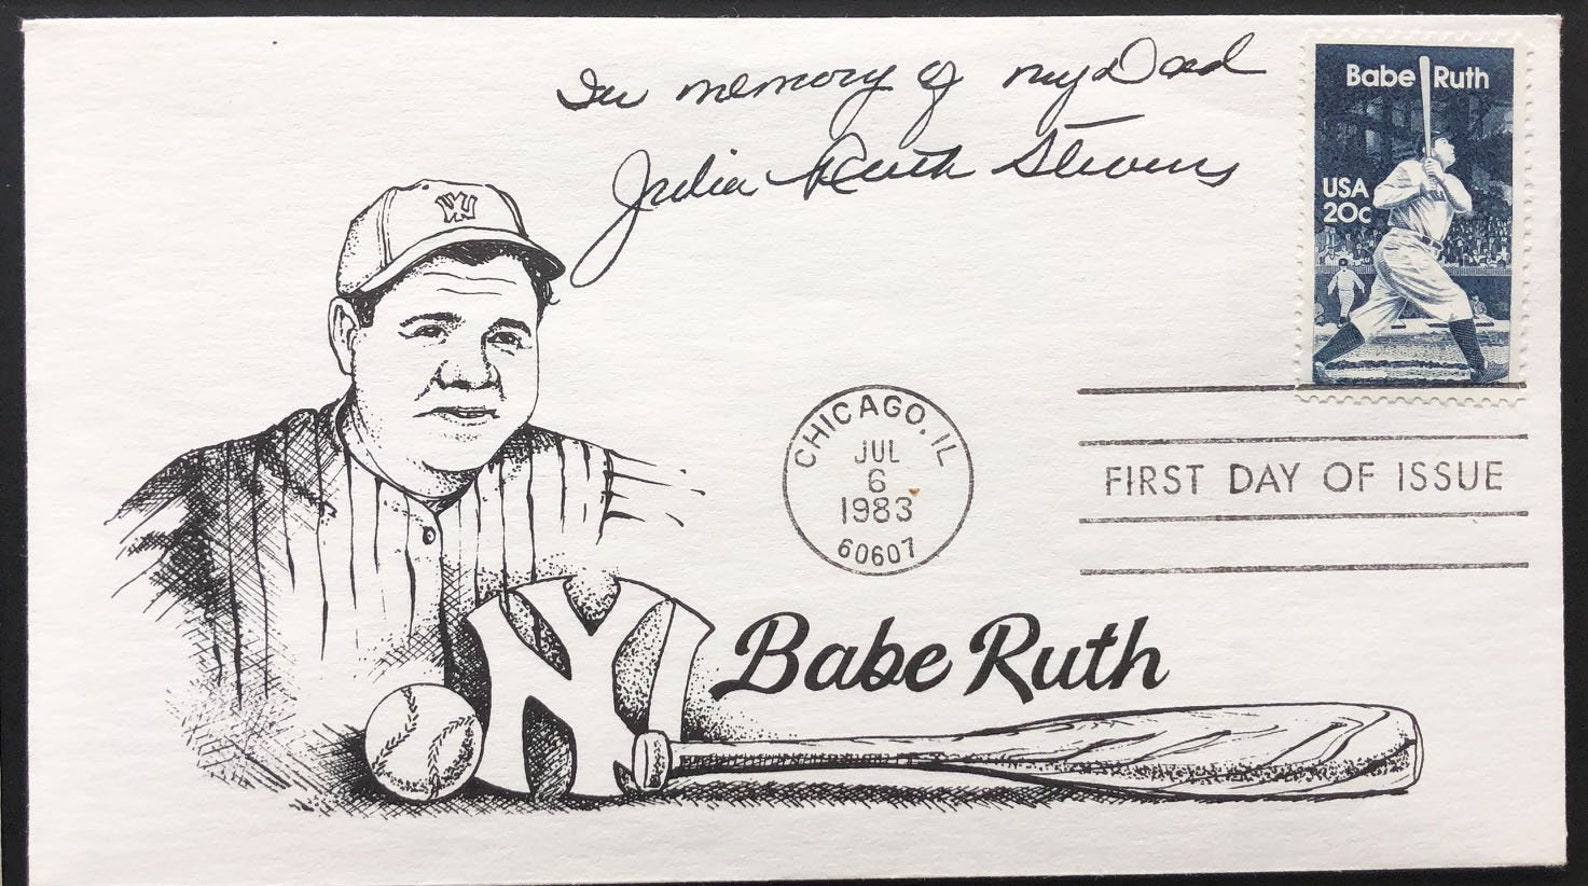 In memory of my Dad
Julia Ruth Stevens
Babe Ruth
USA
20c
CHICAGO, IL
JUL
6
1983
60607
FIRST DAY OF ISSUE
NY
NY
Babe Ruth